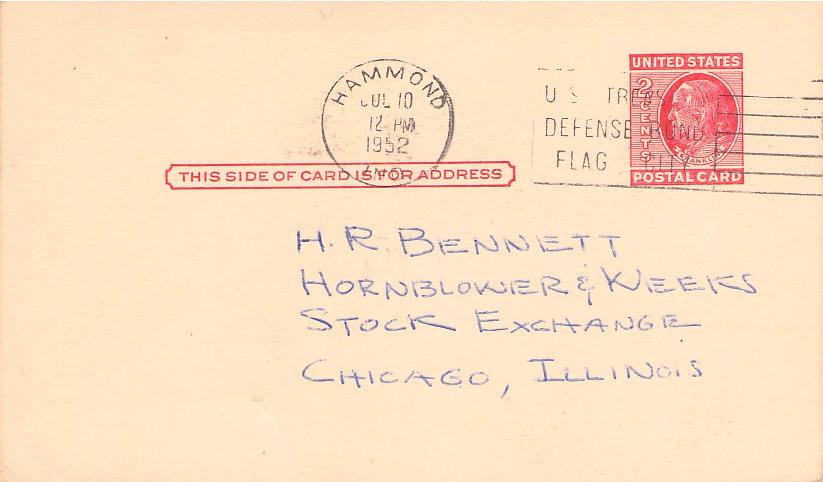 HAMMOND
JUL 10
12 PM
1952
IND.
U.S. TREAS.
DEFENSE BOND
FLAG CITY
UNITED STATES
2 CENTS
FRANKLIN
POSTAL CARD
THIS SIDE OF CARD IS FOR ADDRESS
H. R. BENNETT
HORNBLOWER & WEEKS
STOCK EXCHANGE
CHICAGO, ILLINOIS